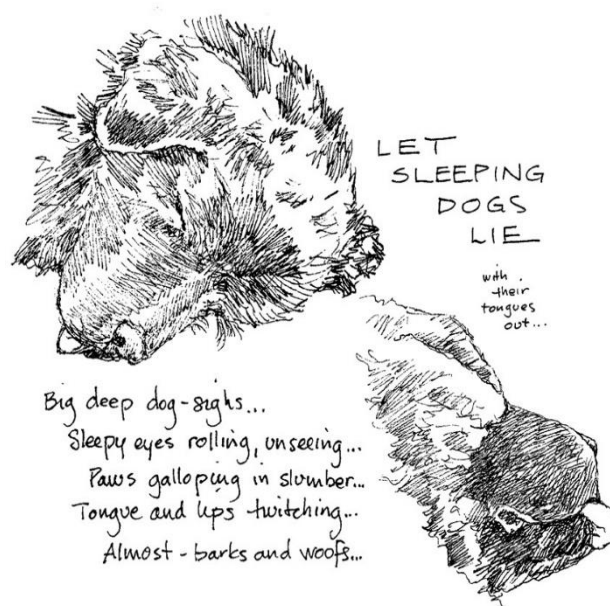 LET
SLEEPING
DOGS
LIE
with
their
tongues
out...
Big deep dog-sighs...
Sleepy eyes rolling, unseeing...
Paws galloping in slumber...
Tongue and lips twitching...
Almost-barks and woofs...